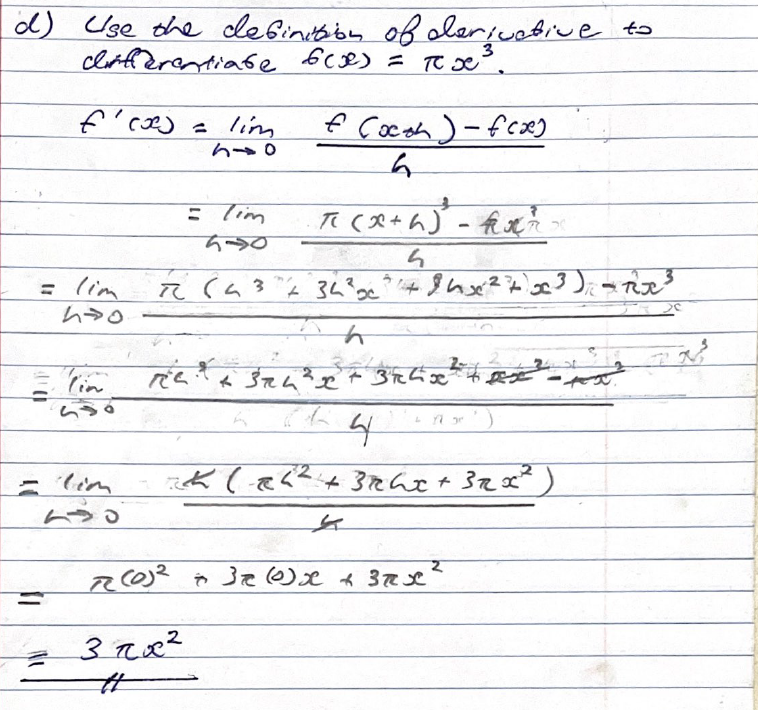 d) Use the definition of derivative to
differentiate f(x) = πx³.
f'(x) = lim h→0 (f(x+h) - f(x)) / h
= lim h→0 (π(x+h)³ - πx³) / h
= lim h→0 (π(h³ + 3h²x + 3hx² + x³) - πx³) / h
= lim h→0 (πh³ + 3πh²x + 3πhx² + πx³ - πx³) / h
= lim h→0 h(πh² + 3πhx + 3πx²) / h
= π(0)² + 3π(0)x + 3πx²
= 3πx²